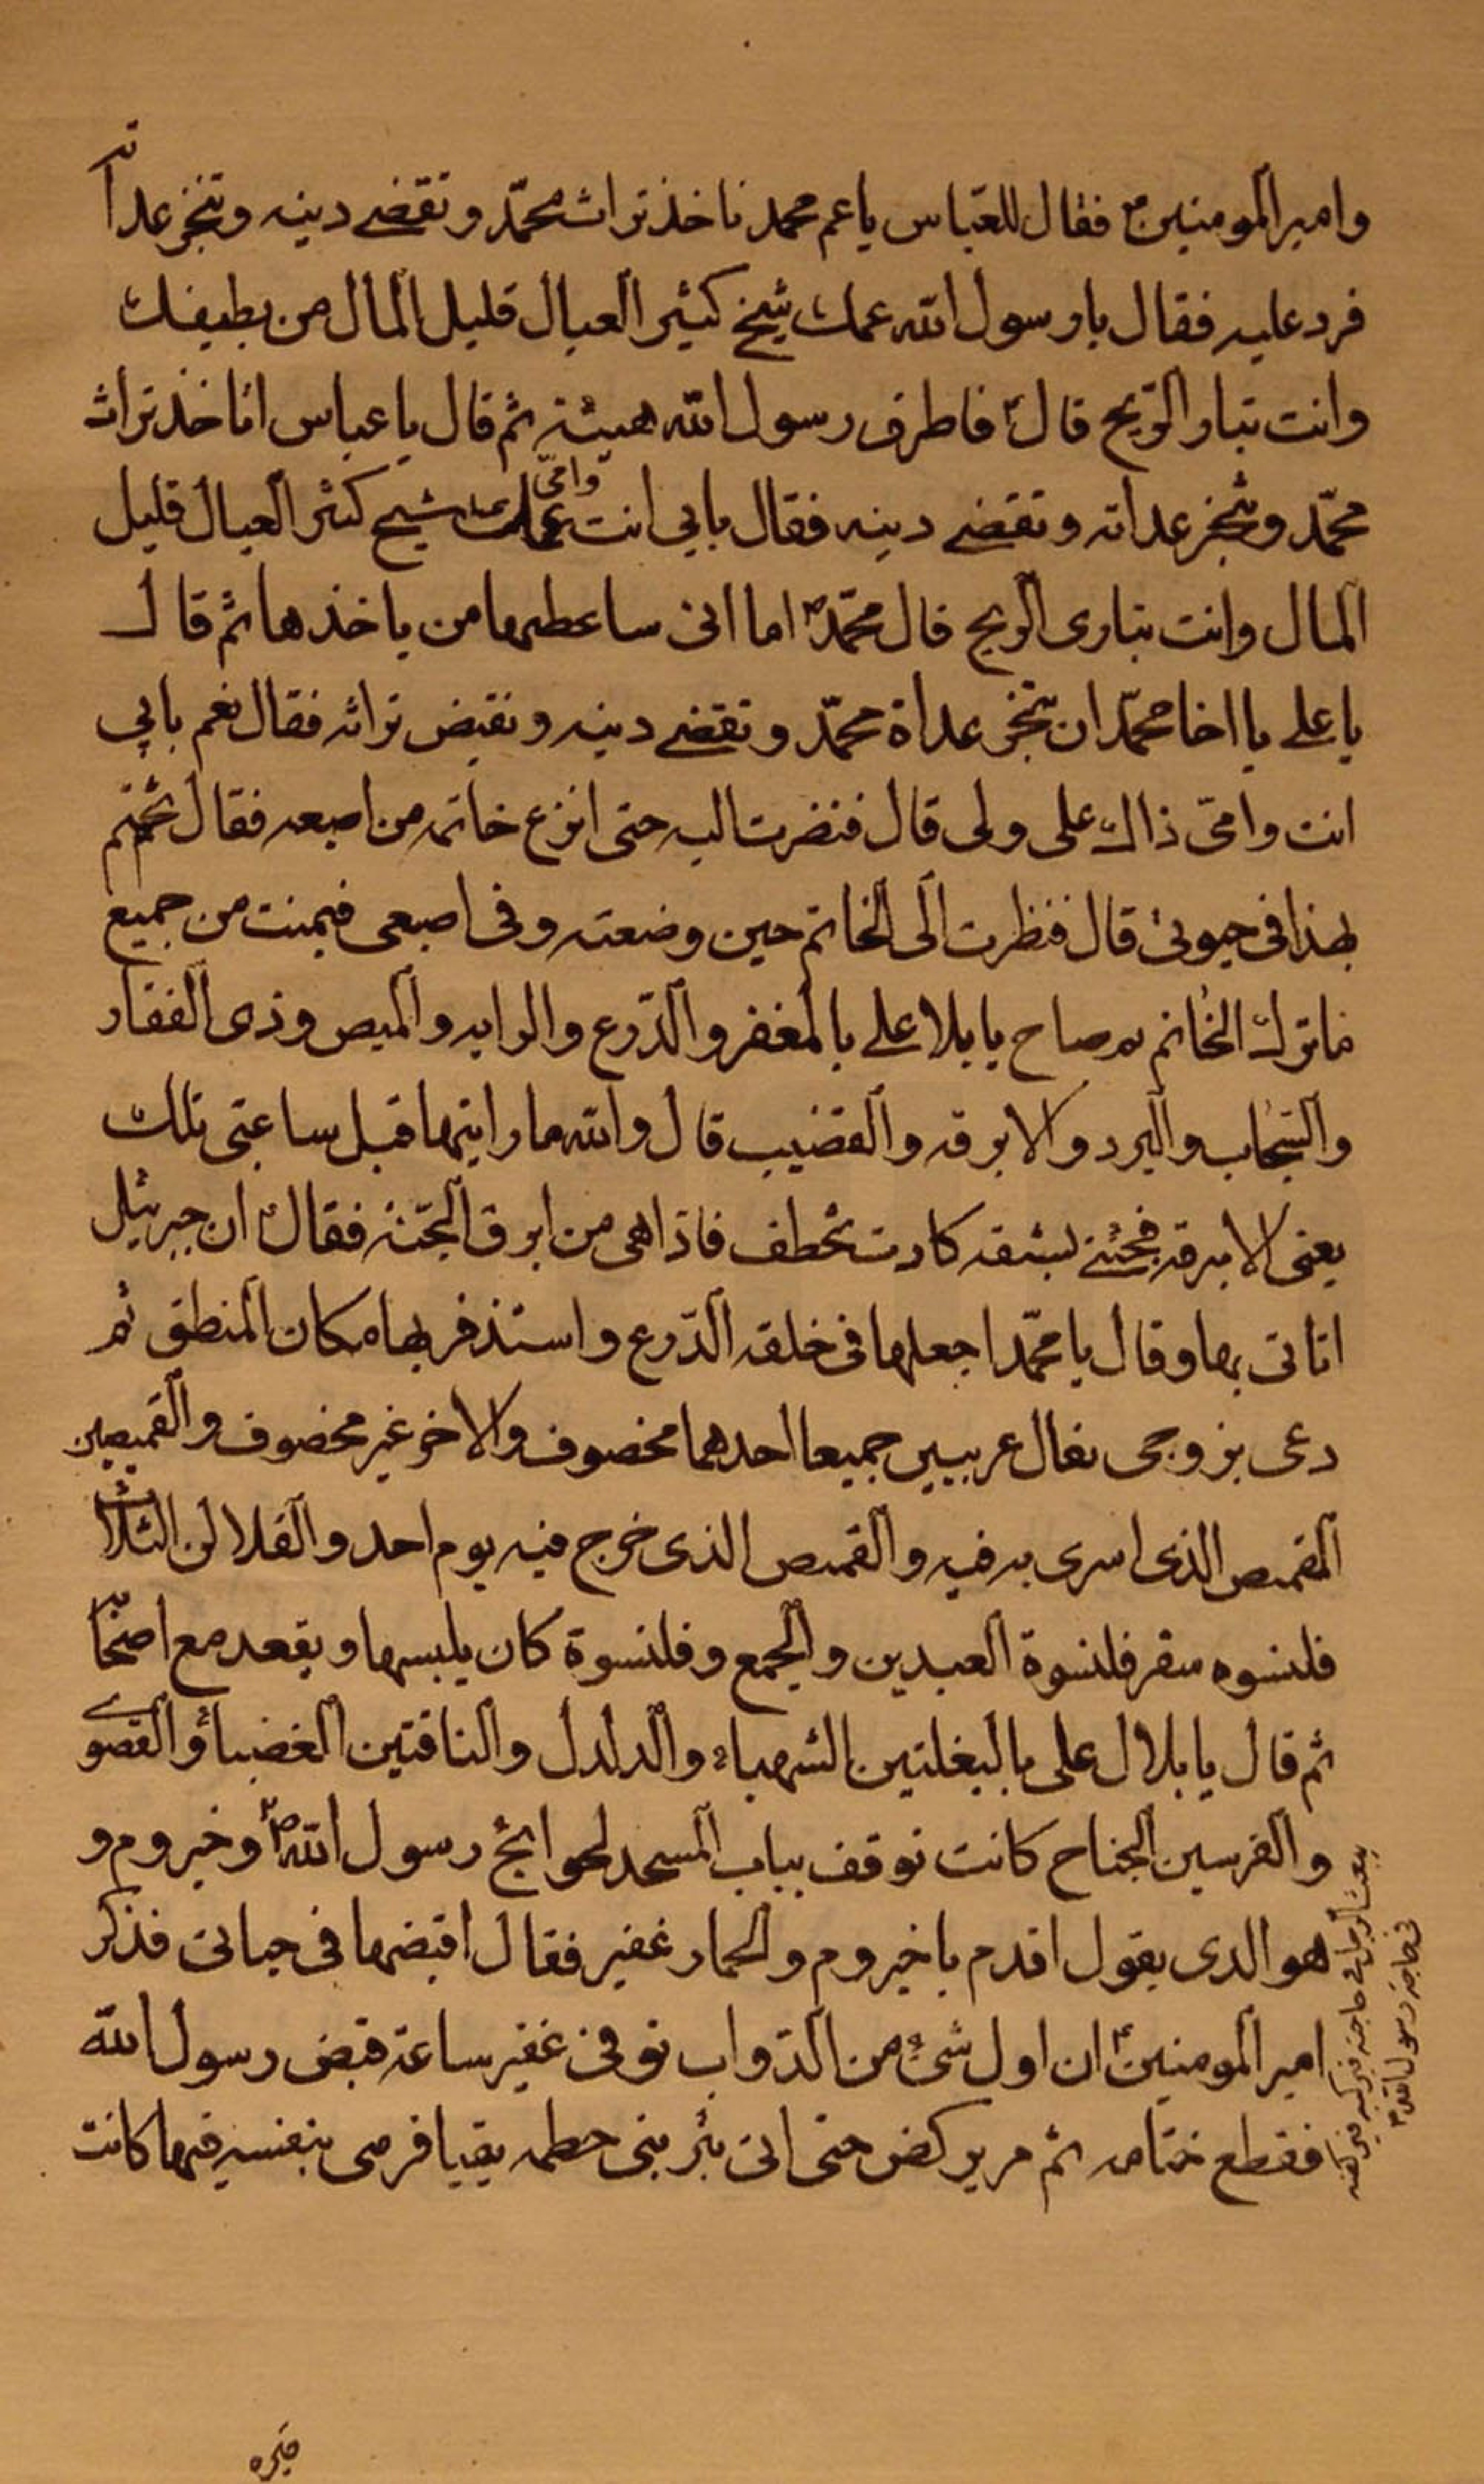 وامير المومنين ع فقال للعباس ياعم محمد تاخذ تراث محمّد وتقضے دينه وتنجز عداته
فرد عليه فقال يا رسول الله عمك شيخ كثير العيال قليل المال من يطيقك
وانت تبار الرّيح قال فاطرق رسول الله هيئة ثم قال يا عباس اتاخذ تراث
محمّد وتنجز عداته وتقضے دينه فقال بابي انت وامّي عمك شيخ كثير العيال قليل
المال وانت تبارى الريح قال محمّد ص اما انى ساعطيها من ياخذها ثم قال
يا على يا اخا محمّد ان تنجز عداة محمّد وتقضے دينه وتقبض تراثه فقال نعم بابي
انت وامّى ذاك على ولى قال فنضرت اليه حتى انزع خاتمه من اصبعه فقال تختم
بهذا فى حيوتى قال فنظرت الى الخاتم حين وضعته وفى اصبعى فيمنت من جميع
ماترك الخاتم ثم صاح يا بلا على بالمغفر والدّرع والرايه والميص وذى الفقار
والسّحاب والبرد والابرقه والقضيب قال والله ما رايتها قبل ساعتى تلك
يعنى الابرقه فجئنے بشقه كادت تخطف فاذاهى من ابرق الجنّة فقال ان جبرئيل
اتانى بها وقال يا محمّد اجعلها فى خلقه الدّرع واستذفر بها مكان المنطق ثم
دعى بزوجى نعال عربيين جميعا احدهما مخصوف والاخر غير مخصوف والقميصين
القميص الذى اسرى به فيه والقميص الذى خرج فيه يوم احد والقلالن الثلاث
قلنسوه سفر قلنسوة العيدين والجمع وقلنسوة كان يلبسها ويقعد مع اصحابه
ثم قال يا بلال على بالبغلتين الشهباء والدلدل والناقتين الغضباؤ القصوى
والفرسين الجناح كانت توقف بباب المسجد لحوائج رسول الله ص وخيروم و
هو الدى يقول اقدم يا خيروم والحمار غفير فقال اقبضها فى حياتى فذكر
امير المومنين ع ان اول شئ من الدّواب توفى غفير ساعة قبض رسول الله
فقطع ختامه ثم مر يركض حتى اتى بئر بنى حطمه بقبا فرمى بنفسه فيها كانت
يبعث الرجل فى حاجته فيركبه فيركضه
فى حاجة رسول الله ص
قبره